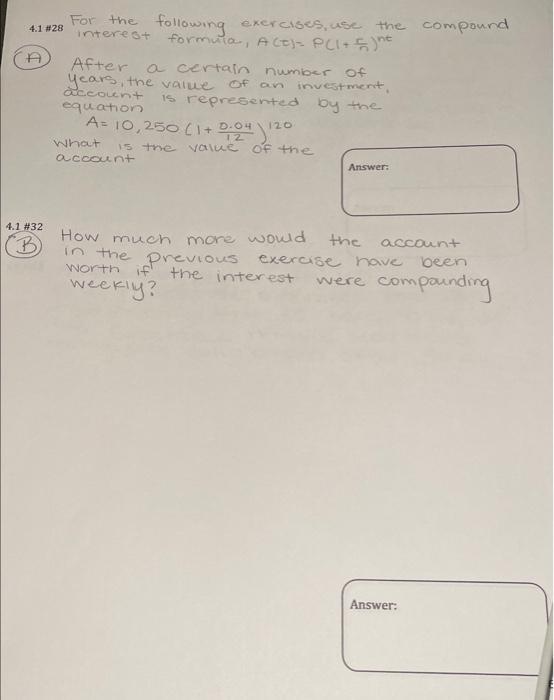 4.1 #28 For the following exercises, use the compound
interest formula, A(t)= P(1+ r/n)^nt
A After a certain number of
years, the value of an investment,
account is represented by the
equation
A= 10,250 (1+ 0.04/12)^120
what is the value of the
account
Answer:
4.1 #32
B How much more would the account
in the previous exercise have been
worth if the interest were compounding
weekly?
Answer: